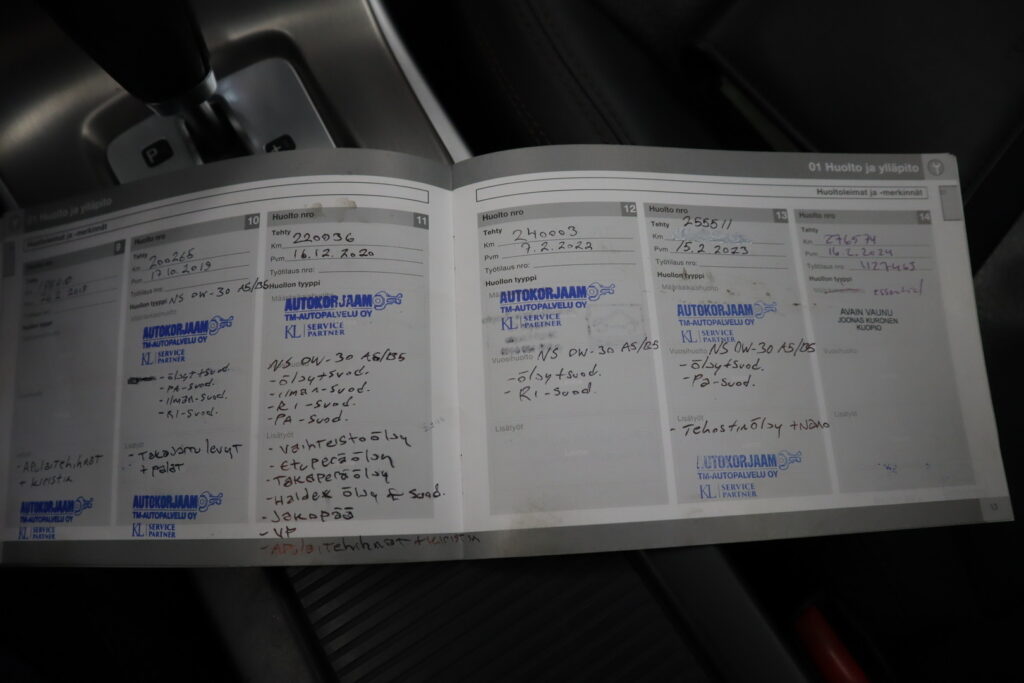 P
01 Huolto ja ylläpito
Huoltoleimat ja -merkinnät
9
2018
Lisätyöt
- Apulaitehihnat
+ kiristin
AUTOKORJAAMO
TM-AUTOPALVELU OY
KL SERVICE
PARTNER
Huolto nro 10
Tehty
Km 200265
Pvm 17.10.2019
Työtilaus nro:
Huollon tyyppi NS 0W-30 A5/B5
Määräaikaishuolto
AUTOKORJAAMO
TM-AUTOPALVELU OY
KL SERVICE
PARTNER
- öljy+suod.
- PA-suod.
- ilman-suod.
- RI-suod.
Lisätyöt
- Takajarru levyt
+ palat
AUTOKORJAAMO
TM-AUTOPALVELU OY
KL SERVICE
PARTNER
Huolto nro 11
Tehty
Km 220036
Pvm 16.12.2020
Työtilaus nro:
Huollon tyyppi
AUTOKORJAAMO
TM-AUTOPALVELU OY
KL SERVICE
PARTNER
NS 0W-30 A5/B5
- öljy+suod.
- ilman-suod.
- RI-suod.
- PA-suod.
Lisätyöt
- Vaihteistoöljy
- Etuperäöljy
- Takaperäöljy
- Haldex öljy & suod.
- Jakopää
- VP
- Apulaitehihnat + kiristin
01 Huolto ja ylläpito
Huoltoleimat ja -merkinnät
Huolto nro 12
Tehty
Km 240003
Pvm 7.2.2022
Työtilaus nro:
Huollon tyyppi
AUTOKORJAAMO
TM-AUTOPALVELU OY
KL SERVICE
PARTNER
Vuosihuolto NS 0W-30 A5/B5
- öljy+suod.
- RI-suod.
Lisätyöt
Huolto nro 13
Tehty
Km 255511
Pvm 15.2.2023
Työtilaus nro:
Huollon tyyppi
Määräaikaishuolto
AUTOKORJAAMO
TM-AUTOPALVELU OY
KL SERVICE
PARTNER
Vuosihuolto NS 0W-30 A5/B5
- öljy+suod.
- Pa-suod.
Lisätyöt
- Tehostinöljy + Nano
AUTOKORJAAMO
TM-AUTOPALVELU OY
KL SERVICE
PARTNER
Huolto nro 14
Tehty
Km 276574
Pvm 16.2.2024
Työtilaus nro: 4127463
Huollon tyyppi
essential
AVAIN VAUNU
JOONAS KURONEN
KUOPIO
Vuosihuolto
Lisätyöt
13